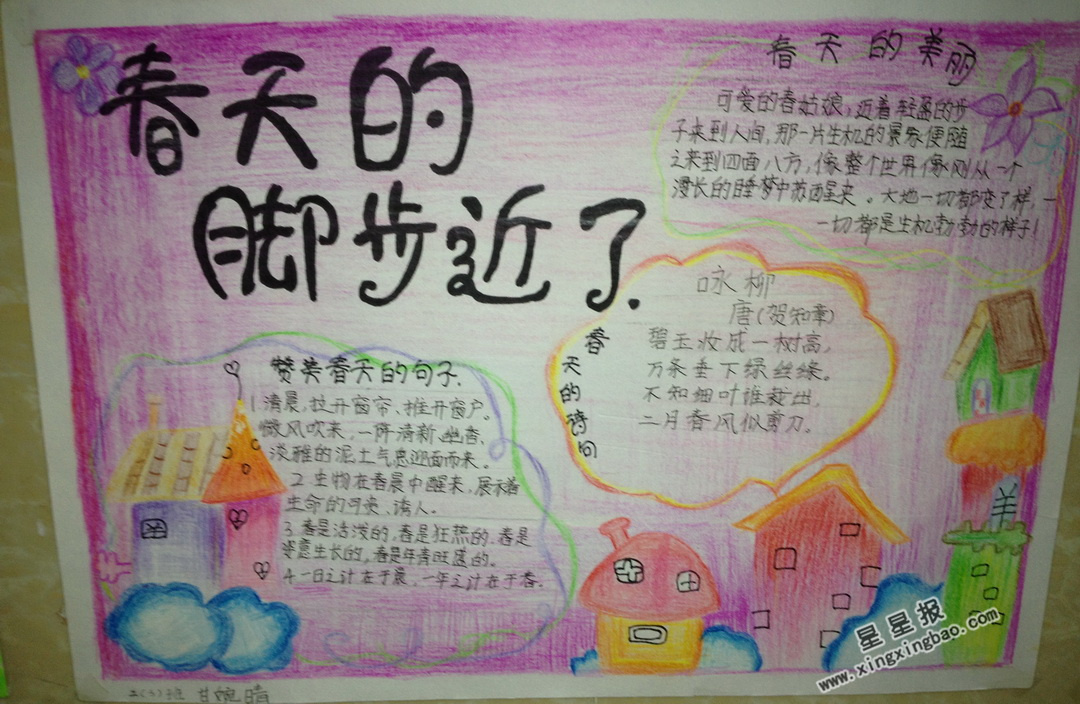 春天的
脚步近了.
春天的美丽
可爱的春姑娘,迈着轻盈的步
子来到人间,那一片生机的景象便随
之来到四面八方,像整个世界像刚从一个
漫长的睡梦中苏醒来。大地一切都变了样,一
一切都是生机勃勃的样子!
咏柳
唐(贺知章)
碧玉妆成一树高,
万条垂下绿丝绦。
不知细叶谁裁出,
二月春风似剪刀。
春天的诗句
赞美春天的句子.
1.清晨,拉开窗帘、推开窗户。
微风吹来,一阵清新、幽香、
淡雅的泥土气息迎面而来。
2.生物在春晨中醒来,展示着
生命的可贵、诱人。
3.春是活泼的,春是狂热的,春是
恣意生长的,春是年青旺盛的。
4.一日之计在于晨,一年之计在于春.
羊
二(3)班 甘婉晴
星星报
www.xingxingbao.com